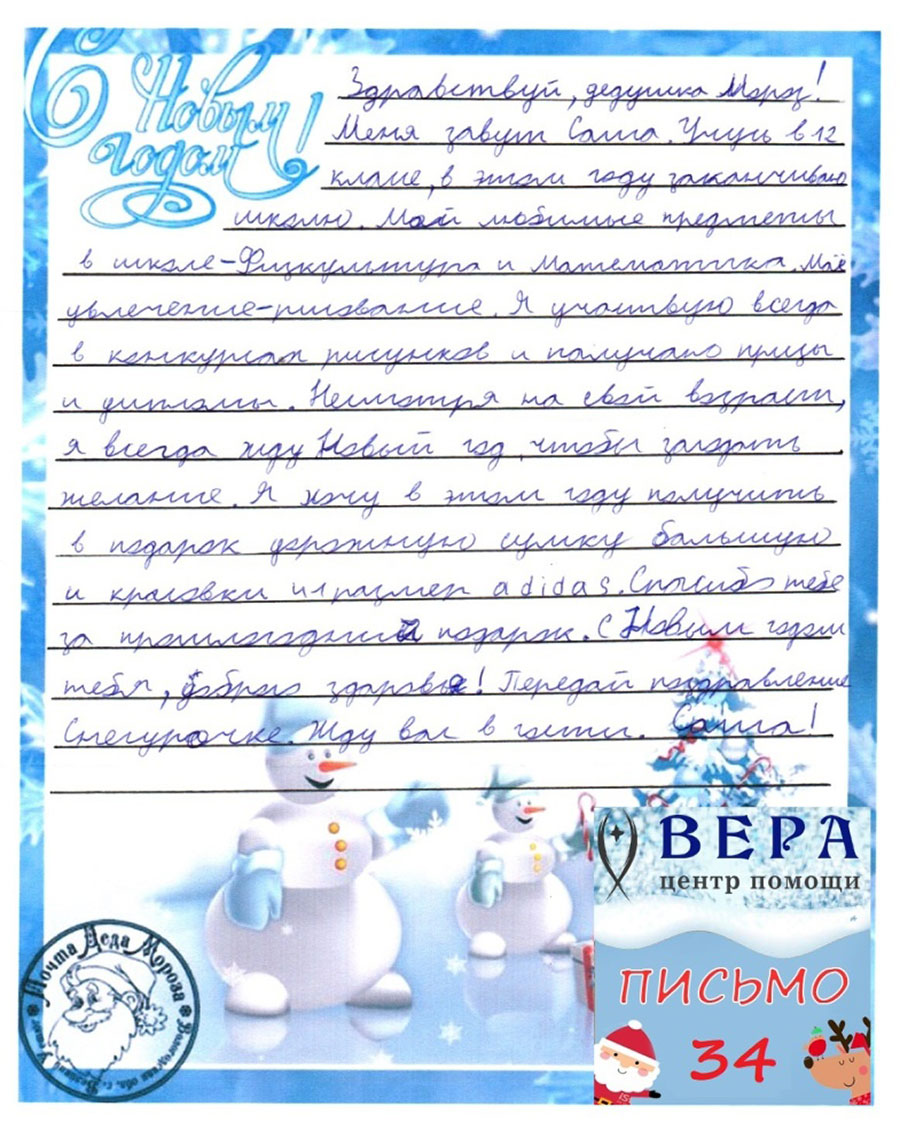 С Новым
годом!
Здравствуй, дедушка Мороз!
Меня завут Саша. Учусь в 12
класе, в этом году заканчиваю
школю. Мой любимые предметы
в школе-Физкультура и Математика. Моё
увлечение-рисование. Я участвую всегда
в конкурсах рисунков и палучаю призы
и дипломы. Несмотря на свой возраст,
я всегда жду Новый год, чтобы загодать
желание. Я хочу в этом году получить
в подарок дорожную сумку большую
и красовки размер adidas. Спасибо тебе
за прошлогодний подарок. С Новым годом
тебя, доброго здоровья! Передай поздравление
Снегурочке. Жду вас в гости. Саша!
ВЕРА
центр помощи
ПИСЬМО
34
Почта Деда Мороза